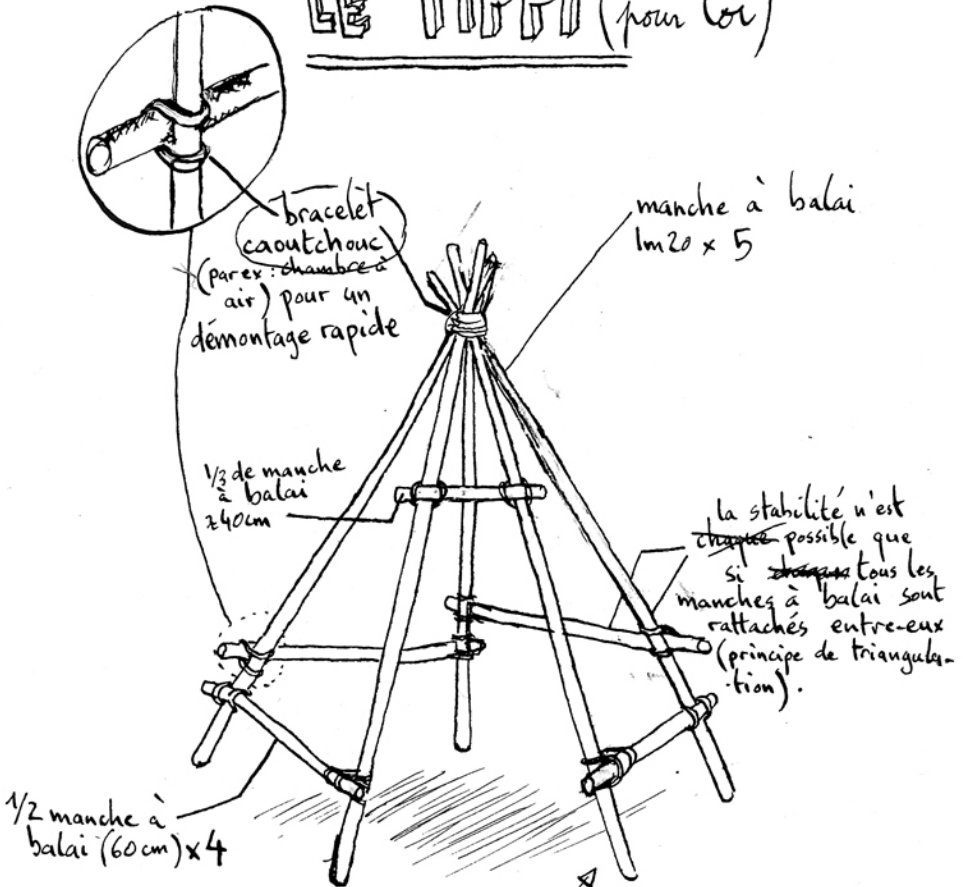 LE TIPPI (pour toi)
bracelet
caoutchouc
(par ex : chambre à
air) pour un
démontage rapide
manche à balai
1m20 x 5
1/3 de manche
à balai
± 40cm
la stabilité n'est
chaque possible que
si tous les
manches à balai sont
rattachés entre-eux
(principe de triangula-
-tion).
1/2 manche à
balai (60 cm) x 4